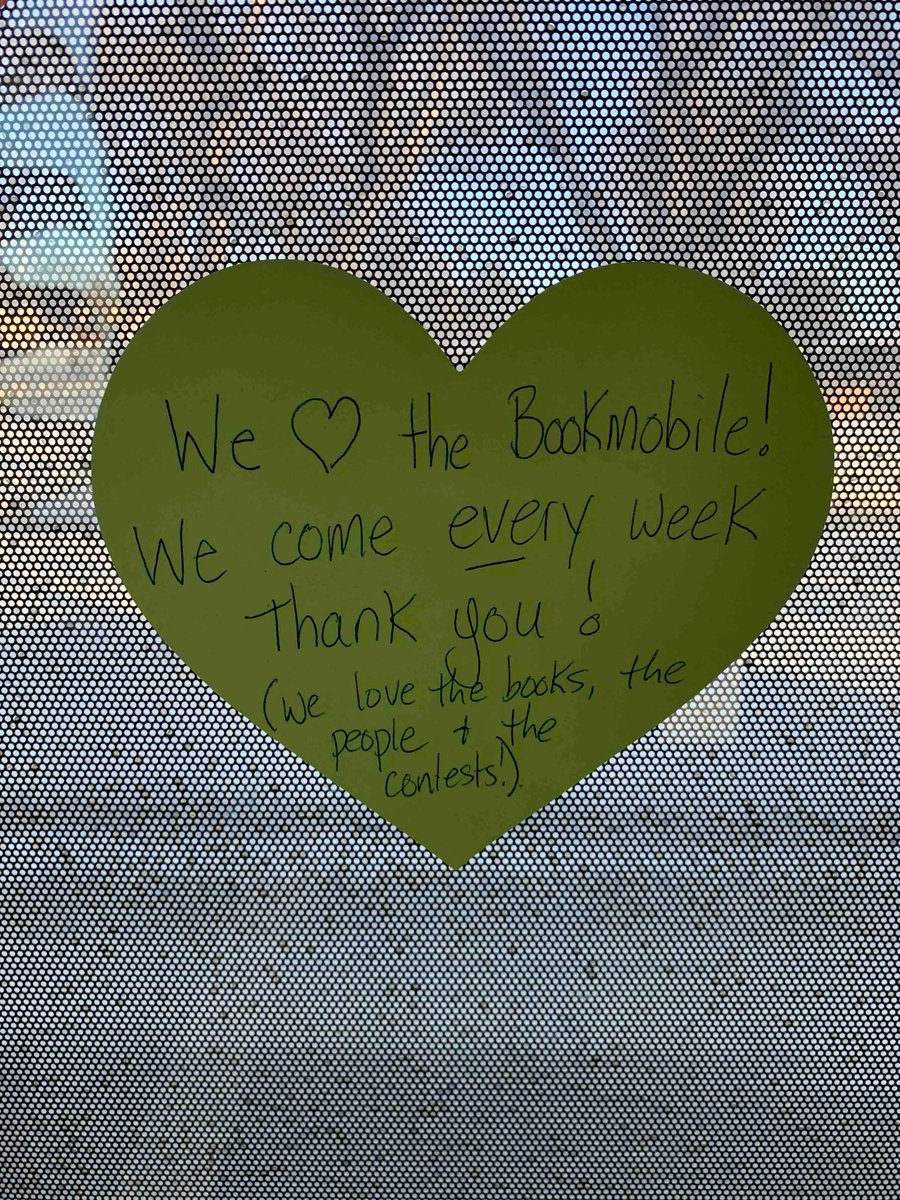 We ♡ the Bookmobile!
We come every week
Thank you!
(we love the books, the
people + the
contests!)